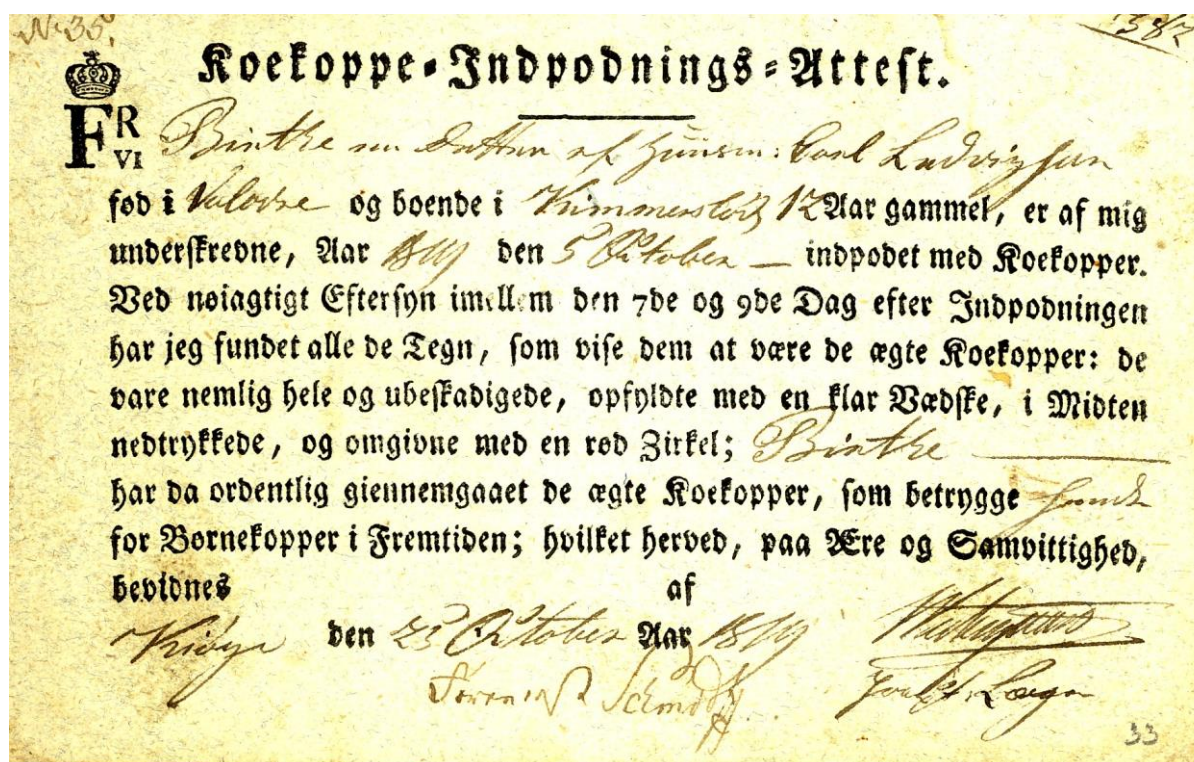 No 35.
Koekoppe-Indpodnings-Attest.
FR
VI
Birthe en datter af Huusm: Carl Ludvigsen
fød i Valøvse og boende i Kimmerslev 12 Aar gammel, er af mig
underskrevne, Aar 1819 den 5 October — indpodet med Koekopper.
Ved nøiagtigt Eftersyn imellem den 7de og 9de Dag efter Indpodningen
har jeg fundet alle de Tegn, som vise dem at være de ægte Koekopper: de
vare nemlig hele og ubeskadigede, opfyldte med en klar Vædske, i Midten
nedtrykkede, og omgivne med en rød Zirkel; Birthe
har da ordentlig giennemgaaet de ægte Koekopper, som betrygge hende
for Børnekopper i Fremtiden; hvilket herved, paa Ære og Samvittighed,
bevidnes af
Kiøge den 25 October Aar 1819
Schmidt
33